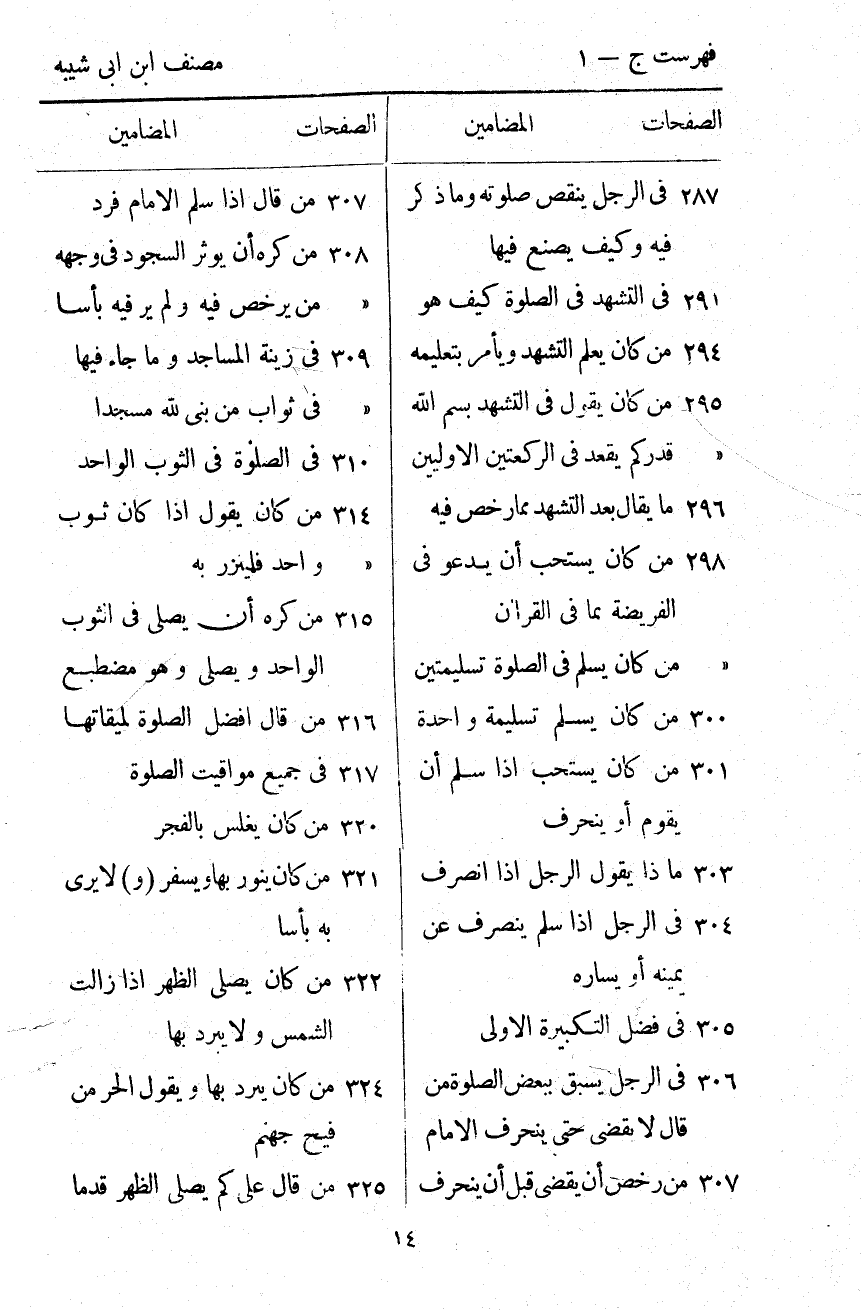 فهرست ج — ١
مصنف ابن ابى شيبه
الصفحات المضامين
٢٨٧ فى الرجل ينقص صلوته وما ذكر
فيه وكيف يصنع فيها
٢٩١ فى التشهد فى الصلوة كيف هو
٢٩٤ من كان يعلم التشهد ويأمر بتعليمه
٢٩٥ من كان يقول فى التشهد بسم الله
» قدركم يقعد فى الركعتين الاوليين
٢٩٦ ما يقال بعد التشهد مما رخص فيه
٢٩٨ من كان يستحب أن يدعو فى
الفريضة بما فى القران
» من كان يسلم فى الصلوة تسليمتين
٣٠٠ من كان يسلم تسليمة واحدة
٣٠١ من كان يستحب اذا سلم أن
يقوم أو ينحرف
٣٠٣ ما ذا يقول الرجل اذا انصرف
٣٠٤ فى الرجل اذا سلم ينصرف عن
يمينه أو يساره
٣٠٥ فى فضل التكبيرة الاولى
٣٠٦ فى الرجل يسبق ببعض الصلوة من
قال لا يقضى حتى ينحرف الامام
٣٠٧ من رخص أن يقضى قبل أن ينحرف
الصفحات المضامين
٣٠٧ من قال اذا سلم الامام فرد
٣٠٨ من كره أن يوثر السجود فى وجهه
» من يرخص فيه و لم ير فيه بأسا
٣٠٩ فى زينة المساجد و ما جاء فيها
» فى ثواب من بنى لله مسجدا
٣١٠ فى الصلوة فى الثوب الواحد
٣١٤ من كان يقول اذا كان ثوب
» واحد فليتزر به
٣١٥ من كره أن يصلى فى الثوب
الواحد و يصلى و هو مضطبع
٣١٦ من قال افضل الصلوة لميقاتها
٣١٧ فى جميع مواقيت الصلوة
٣٢٠ من كان يغلس بالفجر
٣٢١ من كان ينور بها ويسفر (و) لا يرى
به بأسا
٣٢٢ من كان يصلى الظهر اذا زالت
الشمس و لا يبرد بها
٣٢٤ من كان يبرد بها و يقول الحر من
فيح جهنم
٣٢٥ من قال على كم يصلى الظهر قدما
١٤